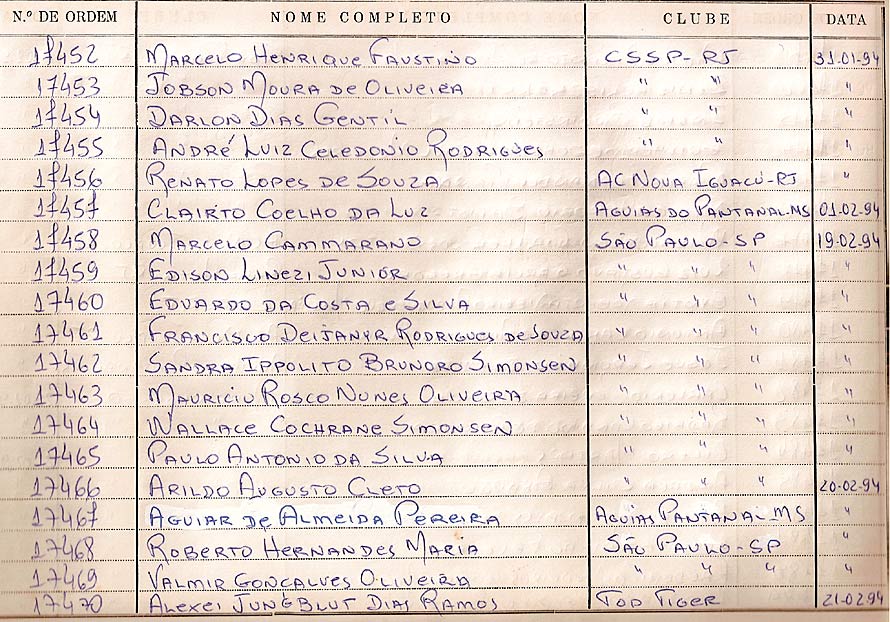 N.º DE ORDEM NOME COMPLETO CLUBE DATA
17452 MARCELO HENRIQUE FAUSTINO CSSP-RJ 31-01-94
17453 JOBSON MOURA DE OLIVEIRA " " "
17454 DARLON DIAS GENTIL " " "
17455 ANDRÉ LUIZ CELEDONIO RODRIGUES " " "
17456 RENATO LOPES DE SOUZA AC NOVA IGUACÚ-RJ "
17457 CLAIRTO COELHO DA LUZ AGUIAS DO PANTANAL-MS 01-02-94
17458 MARCELO CAMMARANO SÃO PAULO-SP 19-02-94
17459 EDISON LINEZI JUNIOR " " " "
17460 EDUARDO DA COSTA E SILVA " " " "
17461 FRANCISCO DEIJANYR RODRIGUES DE SOUZA " " " "
17462 SANDRA IPPOLITO BRUNORO SIMONSEN " " " "
17463 MAURICIO ROSCO NUNES OLIVEIRA " " " "
17464 WALLACE COCHRANE SIMONSEN " " " "
17465 PAULO ANTONIO DA SILVA " " " "
17466 ARILDO AUGUSTO CLETO " " " 20-02-94
17467 AGUIAR DE ALMEIDA PEREIRA AGUIAS PANTANAL-MS "
17468 ROBERTO HERNANDES MARIA SÃO PAULO-SP "
17469 VALMIR GONCALVES OLIVEIRA " " " "
17470 ALEXEI JUNGBLUT DIAS RAMOS TOP TIGER 21-02-94